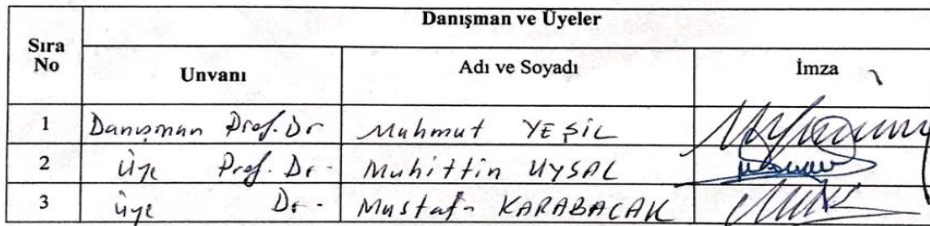 Danışman ve Üyeler
Sıra No Unvanı Adı ve Soyadı İmza
1 Danışman Prof. Dr Mahmut YEŞİL
2 Üye Prof. Dr. Muhittin UYSAL
3 üye Dr. Mustafa KARABACAK